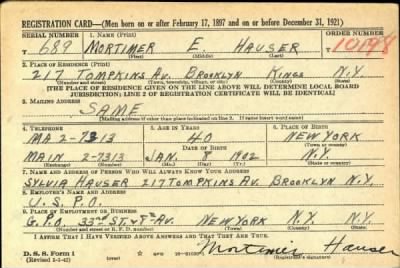 REGISTRATION CARD—(Men born on or after February 17, 1897 and on or before December 31, 1921)
SERIAL NUMBER 1. NAME (Print) ORDER NUMBER
689 MORTIMER E. HAUSER 10198
(First) (Middle) (Last)
2. PLACE OF RESIDENCE (Print)
217 TOMPKINS AV. BROOKLYN KINGS N.Y.
(Number and street) (Town, township, village, or city) (County) (State)
[THE PLACE OF RESIDENCE GIVEN ON THE LINE ABOVE WILL DETERMINE LOCAL BOARD
JURISDICTION; LINE 2 OF REGISTRATION CERTIFICATE WILL BE IDENTICAL]
3. MAILING ADDRESS
SAME
[Mailing address if other than place indicated on line 2. If same insert word same]
4. TELEPHONE 5. AGE IN YEARS 6. PLACE OF BIRTH
MA 2-7313 40 NEW YORK
DATE OF BIRTH (Town or county)
MAIN 2-7313 JAN. 7 1902 N.Y.
(Exchange) (Number) (Mo.) (Day) (Yr.) (State or country)
7. NAME AND ADDRESS OF PERSON WHO WILL ALWAYS KNOW YOUR ADDRESS
SYLVIA HAUSER 217 TOMPKINS AV. BROOKLYN N.Y.
8. EMPLOYER'S NAME AND ADDRESS
U.S.P.O.
9. PLACE OF EMPLOYMENT OR BUSINESS
G.P.O. 33RD ST. & 8TH AV. NEW YORK N.Y. N.Y.
(Number and street or R. F. D. number) (Town) (County) (State)
I AFFIRM THAT I HAVE VERIFIED ABOVE ANSWERS AND THAT THEY ARE TRUE.
D. S. S. Form 1
Mortimer Hauser
(Registrant's signature)